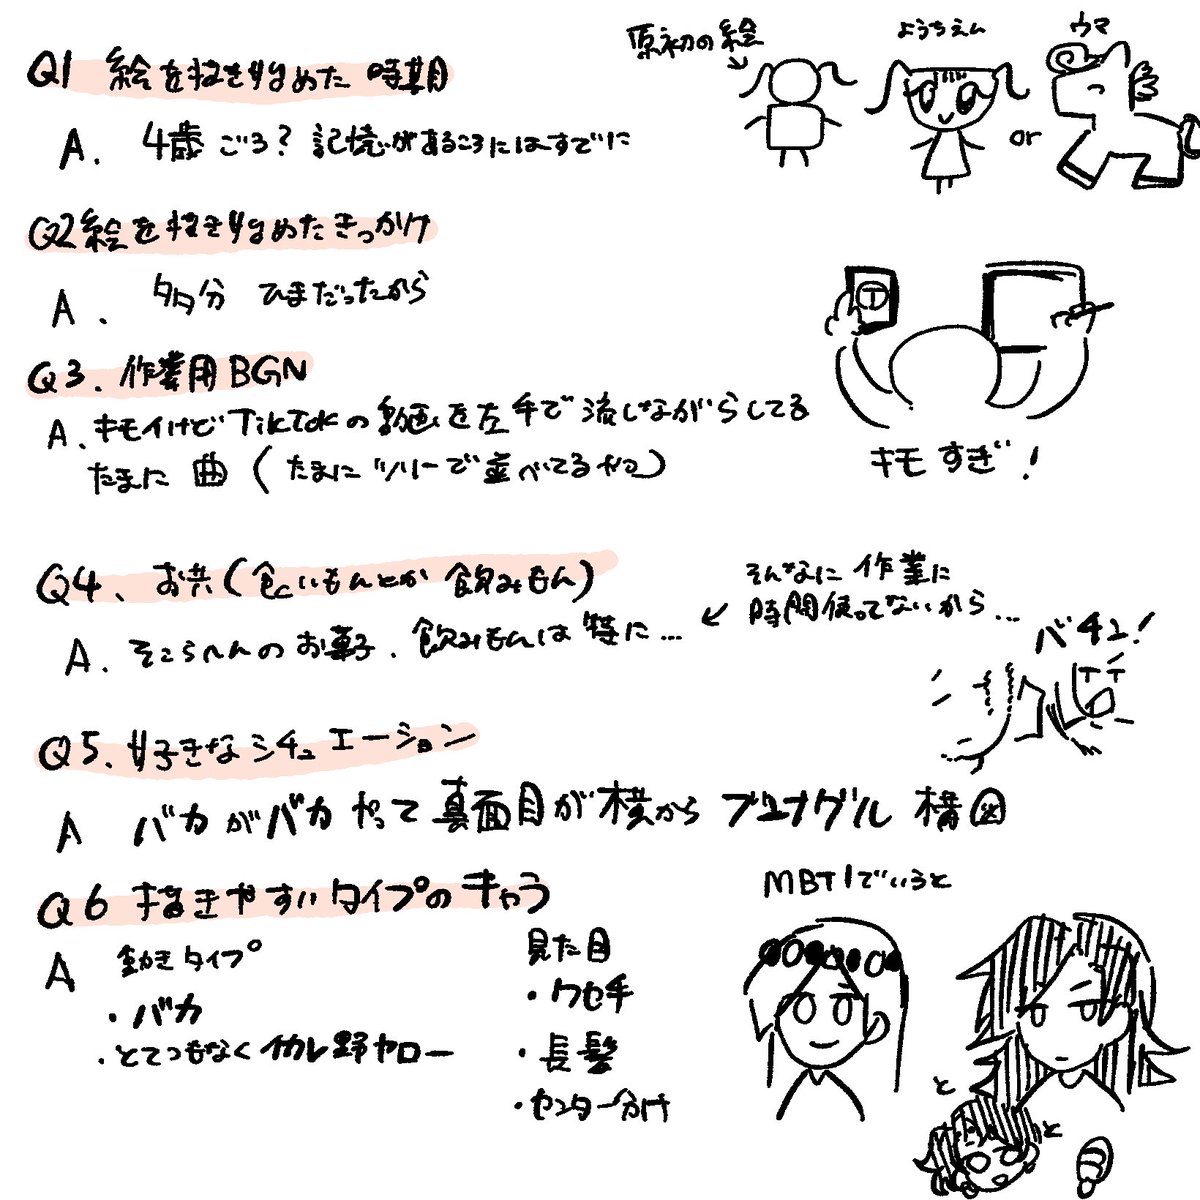 Q1 絵を描き始めた時期
A. 4歳ごろ?記憶があるころにはすでに
原初の絵
ようちえん
or
ウマ
Q2 絵を描き始めたきっかけ
A. 多分 ひまだったから
Q3. 作業用BGM
A. キモイけどTikTokの動画を左手で流しながらしてる
たまに 曲(たまにツリーで並べてるやつ)
キモすぎ!
Q4、お共(食いもんとか飲みもん)
A. そこらへんのお菓子、飲みもんは特に…
そんなに作業に
時間使ってないから…
バチュ!
Q5. 好きなシチュエーション
A バカがバカやって真面目が横からブンナグル構図
Q6 描きやすいタイプのきゃう
A 動きタイプ
・バカ
・とてつもなくイカレ野ヤロー
見た目
・クセ毛
・長髪
・センター分け
MBTIでいうと
と
と